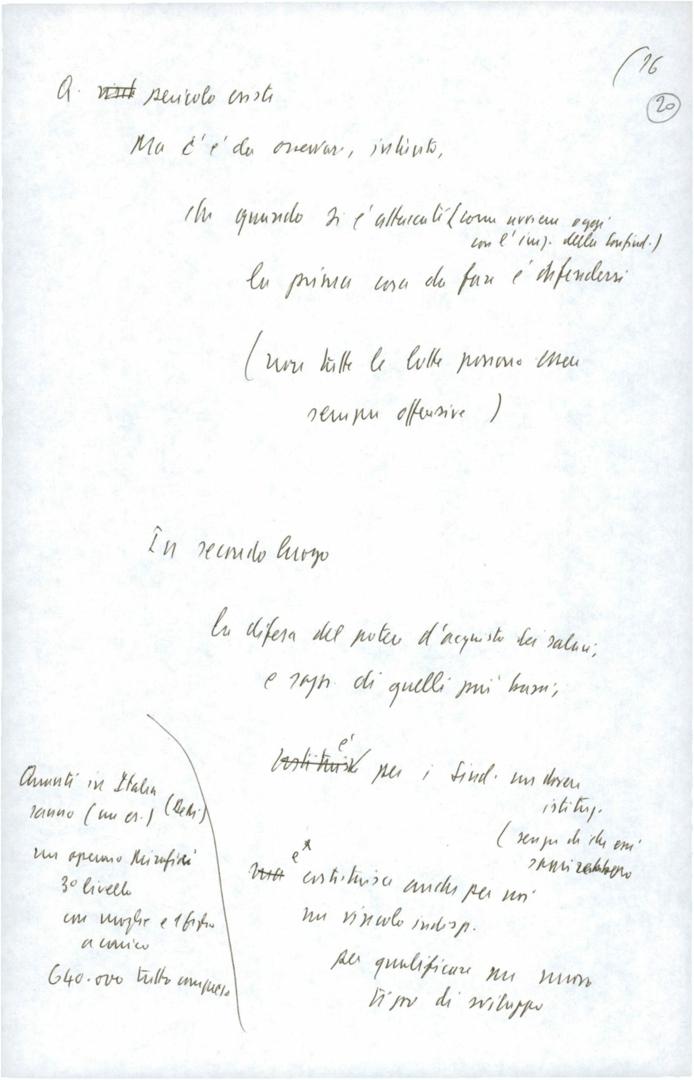 (16
20
Q. pericolo esiste
Ma c'è da osservare, intanto,
che quando si è attaccati (come avviene oggi
con l'imp. della Confind.)
la prima cosa da fare è difendersi
(non tutte le lotte possono essere
sempre offensive)
In secondo luogo
la difesa del potere d'acquisto dei salari,
e sopr. di quelli più bassi,
è
costituisce per i Sind. un dovere
istituz.
(senza di che essi
è
costituisce anche per noi
un vincolo indisp.
per qualificare un nuovo
tipo di sviluppo
Quanti in Italia
sanno (un es.)
un operaio Mirafiori
3º livello
con moglie e 1 figlio
a carico
640.000 tutto compreso